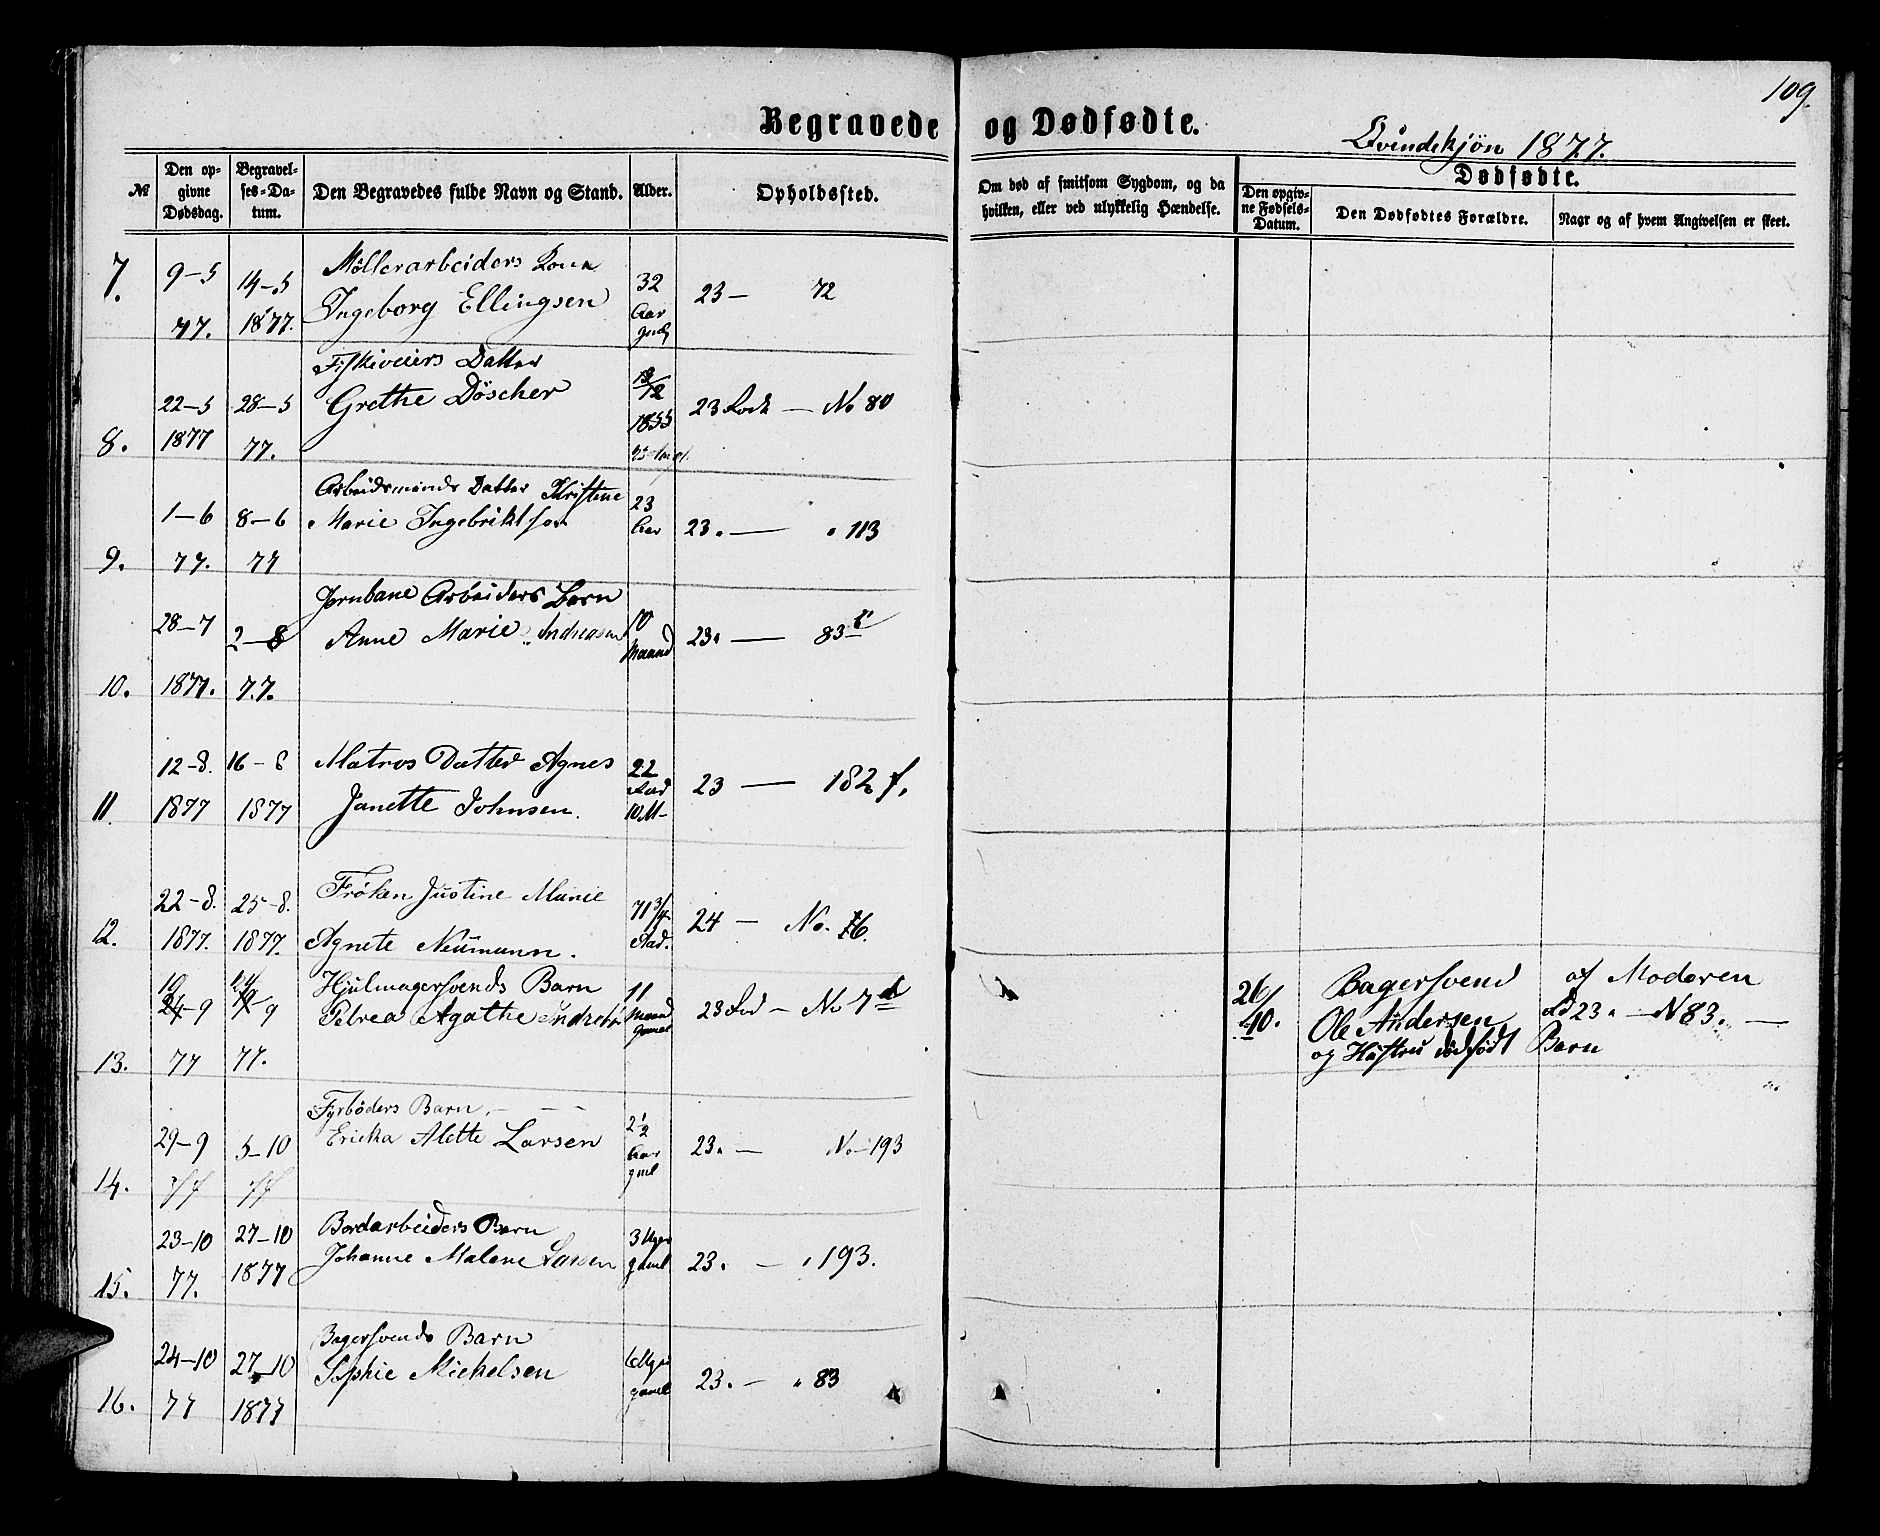 109.
Begravede og Dødfødte.
Qvindekjøn 1877.
№
Den opgivne Dødsdag.
Begravelses-Datum.
Den Begravedes fulde Navn og Stand.
Alder.
Opholdssted.
Om død af smitsom Sygdom, og da hvilken, eller ved ulykkelig Hændelse.
Dødfødte.
Den opgivne Fødsels-Datum.
Den Dødfødtes Forældre.
Naar og af hvem Angivelsen er skeet.
7. 9-5 77. 14-5 1877.
Möllerarbeiders Kone
Ingeborg Ellingsen
32 Aar
23 — 72
8. 22-5 1877 28-5 77.
Datter
Grethe Döscher
12 1855
23 Rode — No 80
9. 1-6 77. 8-6 77
Arbeidsmands Datter Kristine
Marie
23 Aar
23. — " 113
10. 28-7 1877. 2-8 77.
Jernbane Arbeiders Barn
Anne Marie Andreasen
10 Maaned
23. — 83
11. 12-8. 1877 16-8 1877
Matros Datter Agnes
Janette Johnsen.
22 Aar 10 M-
23 — 182 f.
12. 22-8. 1877. 25-8. 1877.
Frøken Justine Marie
Agnete Neumann.
71 3/4 Aar.
24 — No. 16.
13. 9 77 9 77.
Hjulmagersvends Barn
Petrea Agathe
11 Maaned gammel
23 Rod — No 7 d
26/10.
Bagersvend af Moderen
Ole Andersen Rd 23. — N 83. —
og Hustru dødfødt Barn
14. 29-9 77 5-10 77
Fyrböders Barn. - - -
Ericka Alette Larsen
2 1/2 Aar gml
23. — No 193
15. 23-10 77. 27-10 1877
Bordarbeiders Barn
Johanne Malene Larsen
3 Uger gaml
23. — " 193.
16. 24-10 77 27-10 1877
Bagersvends Barn
Sophie Mickelsen
6 Uger gaml
23. — " 83